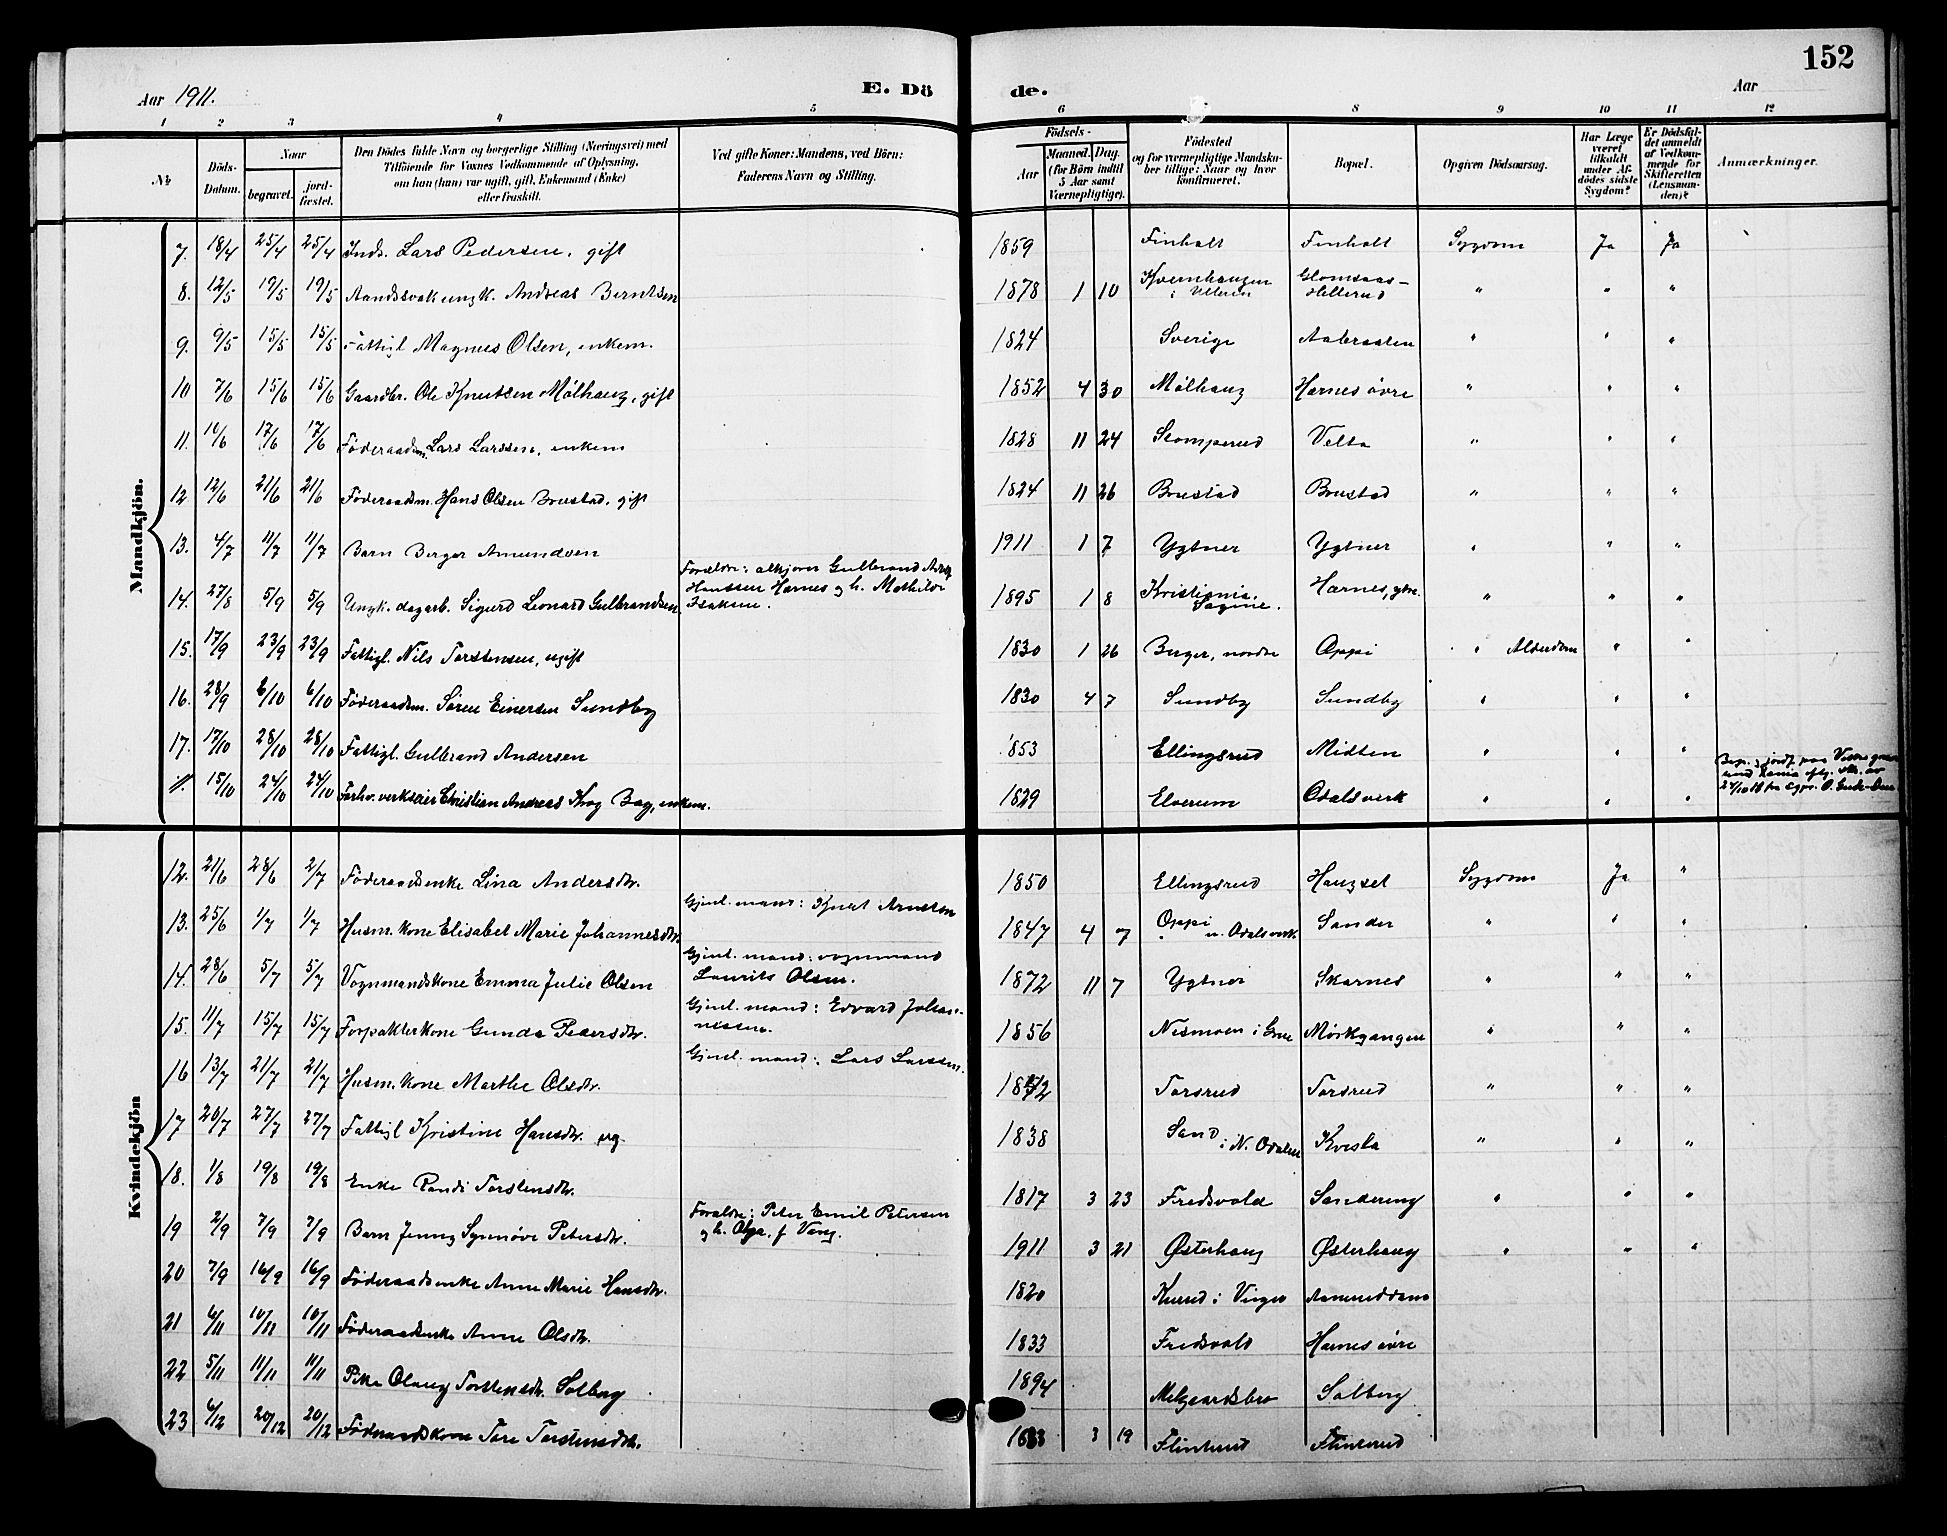 152
Aar 1911. E. Dö de. Aar
1 2 3 4 5 6 8 9 10 11 12
№ Döds-Datum. Naar begravet. jord-fæstet. Den Dödes fulde Navn og borgerlige Stilling (Næringsvei) med Tilföiende for Voxnes Vedkommende af Oplysning, om han (hun) var ugift, gift, Enkemand (Enke) eller fraskilt. Ved gifte Koner: Mandens, ved Börn: Faderens Navn og Stilling. Födsels- Aar Maaned. Dag. (for Börn indtil 5 Aar samt Værnepligtige). Födested og for værnepligtige Mandska-ber tillige: Naar og hvor konfirmeret. Bopæl. Opgiven Dödsaarsag. Har Læge været tilkaldt under Af-dödes sidste Sygdom? Er Dödsfal-det anmeldt af Vedkom-mende for Skifteretten (Lensman-den)? Anmærkninger.
Mandkjön.
7. 18/4 25/4 25/4 Inds. Lars Pedersen, gift 1859 Finholt Finholt Sygdom Ja Ja
8. 12/5 19/5 19/5 Aandssvak ungk. Andreas Berntsen 1878 1 10 Kvernhaugen i Glomsaas-Hellerud " " "
9. 9/5 15/5 15/5 Fattigl Magnus Olsen, enkem. 1824 Sverige Aabraaten " " "
10 7/6 15/6 15/6 Gaardbr. Ole Knutsen Mølhaug, gift 1852 4 30 Mølhaug Harnes övre " " "
11. 10/6 17/6 17/6 Föderaadsm. Lars Larssen, enkem 1828 11 24 Stomperud Velta " " "
12 12/6 21/6 21/6 Föderaadsm. Hans Olsen Brustad, gift 1824 11 26 Brustad Brustad " " "
13. 4/7 11/7 11/7 Barn Berger Amundsen 1911 1 7 Ygtner Ygtner " " "
14. 27/8 5/9 5/9 Ungk. dagarb. Sigurd Leonard Gulbrandsen Forældre: Gulbrand Hanssen Harnes og h. Mathilde Isaksen. 1895 1 8 Kristiania, Sagene. Harnes, " " "
15. 17/9 23/9 23/9 Fattigl. Nils Torstensen, ugift 1830 1 26 Berger, nordre Oppi " Alderdom " "
16. 28/9 6/10 6/10 Föderaadsm. Søren Einersen Sundby 1830 4 7 Sundby Sundby " " "
17. 17/10 28/10 28/10 Fattigl. Gulbrand Andersen 1853 Ellingsrud Midtun " " "
15/10 24/10 24/10 Forhv. verkseier Christian Andreas Krog Bag, enkem. 1829 Elverum Odalsverk " " "
Kvindekjön
12. 21/6 28/6 2/7 Föderaadsenke Lina Andersdtr. 1850 Ellingsrud Haugset Sygdom Ja "
13. 25/6 1/7 1/7 Husm. kone Elisabet Marie Johannesdtr. Gjenl. mand: Knut Arnesen 1847 4 7 Oppi u. Odalsverk Sander " " "
14. 28/6 5/7 5/7 Vognmandskone Emma Julie Olsen Gjenl. mand: vognmand Laurits Olsen. 1872 11 7 Ygtner Skarnes " " "
15. 11/7 15/7 15/7 Forpakterkone Gunda Pedersdtr. Gjenl. mand: Edvard Johannessen. 1856 Nesmoen i Grue Mørkgangen " " "
16 13/7 21/7 21/7 Husm. kone Marthe Olsdtr. Gjenl. mand: Lars Larssen. Torsrud Torsrud " " "
17 20/7 27/7 27/7 Fattigl Kristine Hansdtr. ug. 1838 Sand i N. Odalen Kvisla " " "
18. 1/8 19/8 19/8 Enke Randi Torstensdtr. 1817 3 23 Fredsvold Sandereng " " "
19 2/9 7/9 7/9 Barn Jenny Synnöve Petersdtr. Forældre: Peter Emil Petersen og h. Olga, f Vang. 1911 3 21 Østerhaug Østerhaug " " "
20 7/9 16/9 16/9 Föderaadsenke Anne Marie Hansdtr. 1820 Kurud i Vinger
21 6/11 10/11 10/11 Föderaadsenke Anne Olsdtr. 1833 Fredsvold Harnes övre
22 5/11 11/11 11/11 Pike Olaug Torstensdtr. Solberg 1894 Melgaardsbro Solberg
23 6/12 20/12 20/12 Föderaadskone Tore Torstensdtr. 3 19 Flinterud Flinterud